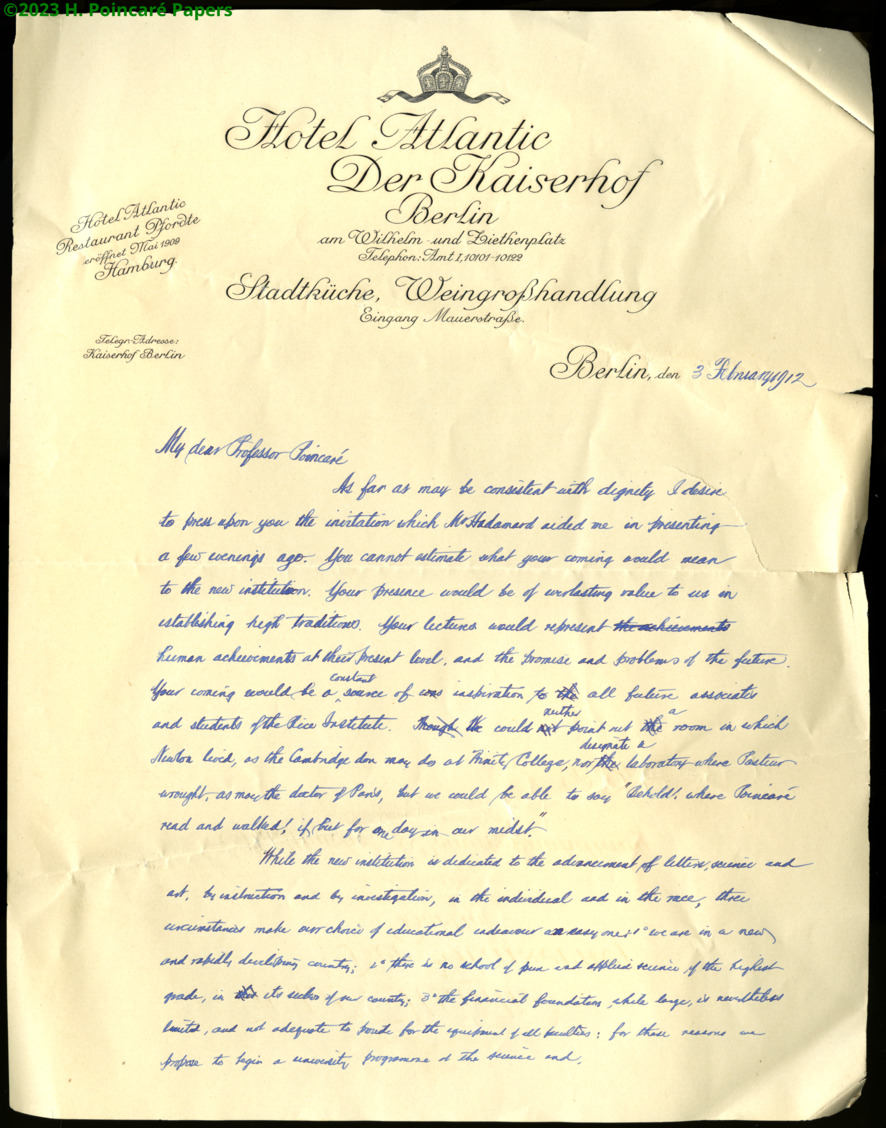 ©2023 H. Poincaré Papers
Hotel Atlantic
Der Kaiserhof
Berlin
am Wilhelm- und Ziethenplatz
Telephon: Amt I, 10101-10122
Hotel Atlantic
Restaurant Pfordte
eröffnet Mai 1909
Hamburg.
Stadtküche, Weingroßhandlung
Eingang Mauerstraße.
Telegr.-Adresse:
Kaiserhof Berlin
Berlin, den 3 February 1912
My dear Professor Poincaré
As far as may be consistent with dignity I desire
to press upon you the invitation which Mr Hadamard aided me in presenting
a few evenings ago. You cannot estimate what your coming would mean
to the new institution. Your presence would be of everlasting value to us in
establishing high traditions. Your lectures would represent the achievements
human achievements at their present level, and the promise and problems of the future.
constant
Your coming would be a source of inspiration to the all future associates
neither a
and students of the Rice Institute. Though we could not point out the room in which
designate a
Newton lived, as the Cambridge don may do at Trinity College, nor the laboratory where Pasteur
wrought, as may the doctor of Paris, but we could be able to say "Behold! where Poincaré
read and walked! if but for one day in our midst."
While the new institution is dedicated to the advancement of letters, science and
art, by instruction and by investigation, in the individual and in the race, three
circumstances make our choice of educational endeavour an easy one: 1° we are in a new
and rapidly developing country; 2° there is no school of pure and applied science, of the highest
grade, in its section of our country; 3° the financial foundation, while large, is nevertheless
limited, and not adequate to provide for the equipment of all faculties: for these reasons we
propose to begin a university programme at the science end,